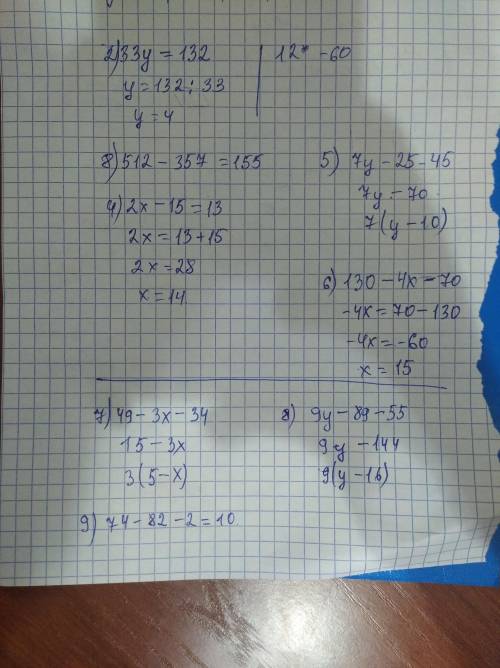 2) 33y = 132
y = 132 : 33
y = 4
12* - 60
8) 512 - 357 = 155
4) 2x - 15 = 13
2x = 13 + 15
2x = 28
x = 14
5) 7y - 25 - 45
7y - 70
7(y - 10)
6) 130 - 4x - 70
-4x = 70 - 130
-4x = -60
x = 15
7) 49 - 3x - 34
15 - 3x
3(5 - x)
8) 9y - 89 - 55
9y - 144
9(y - 16)
9) 74 - 82 - 2 = 10